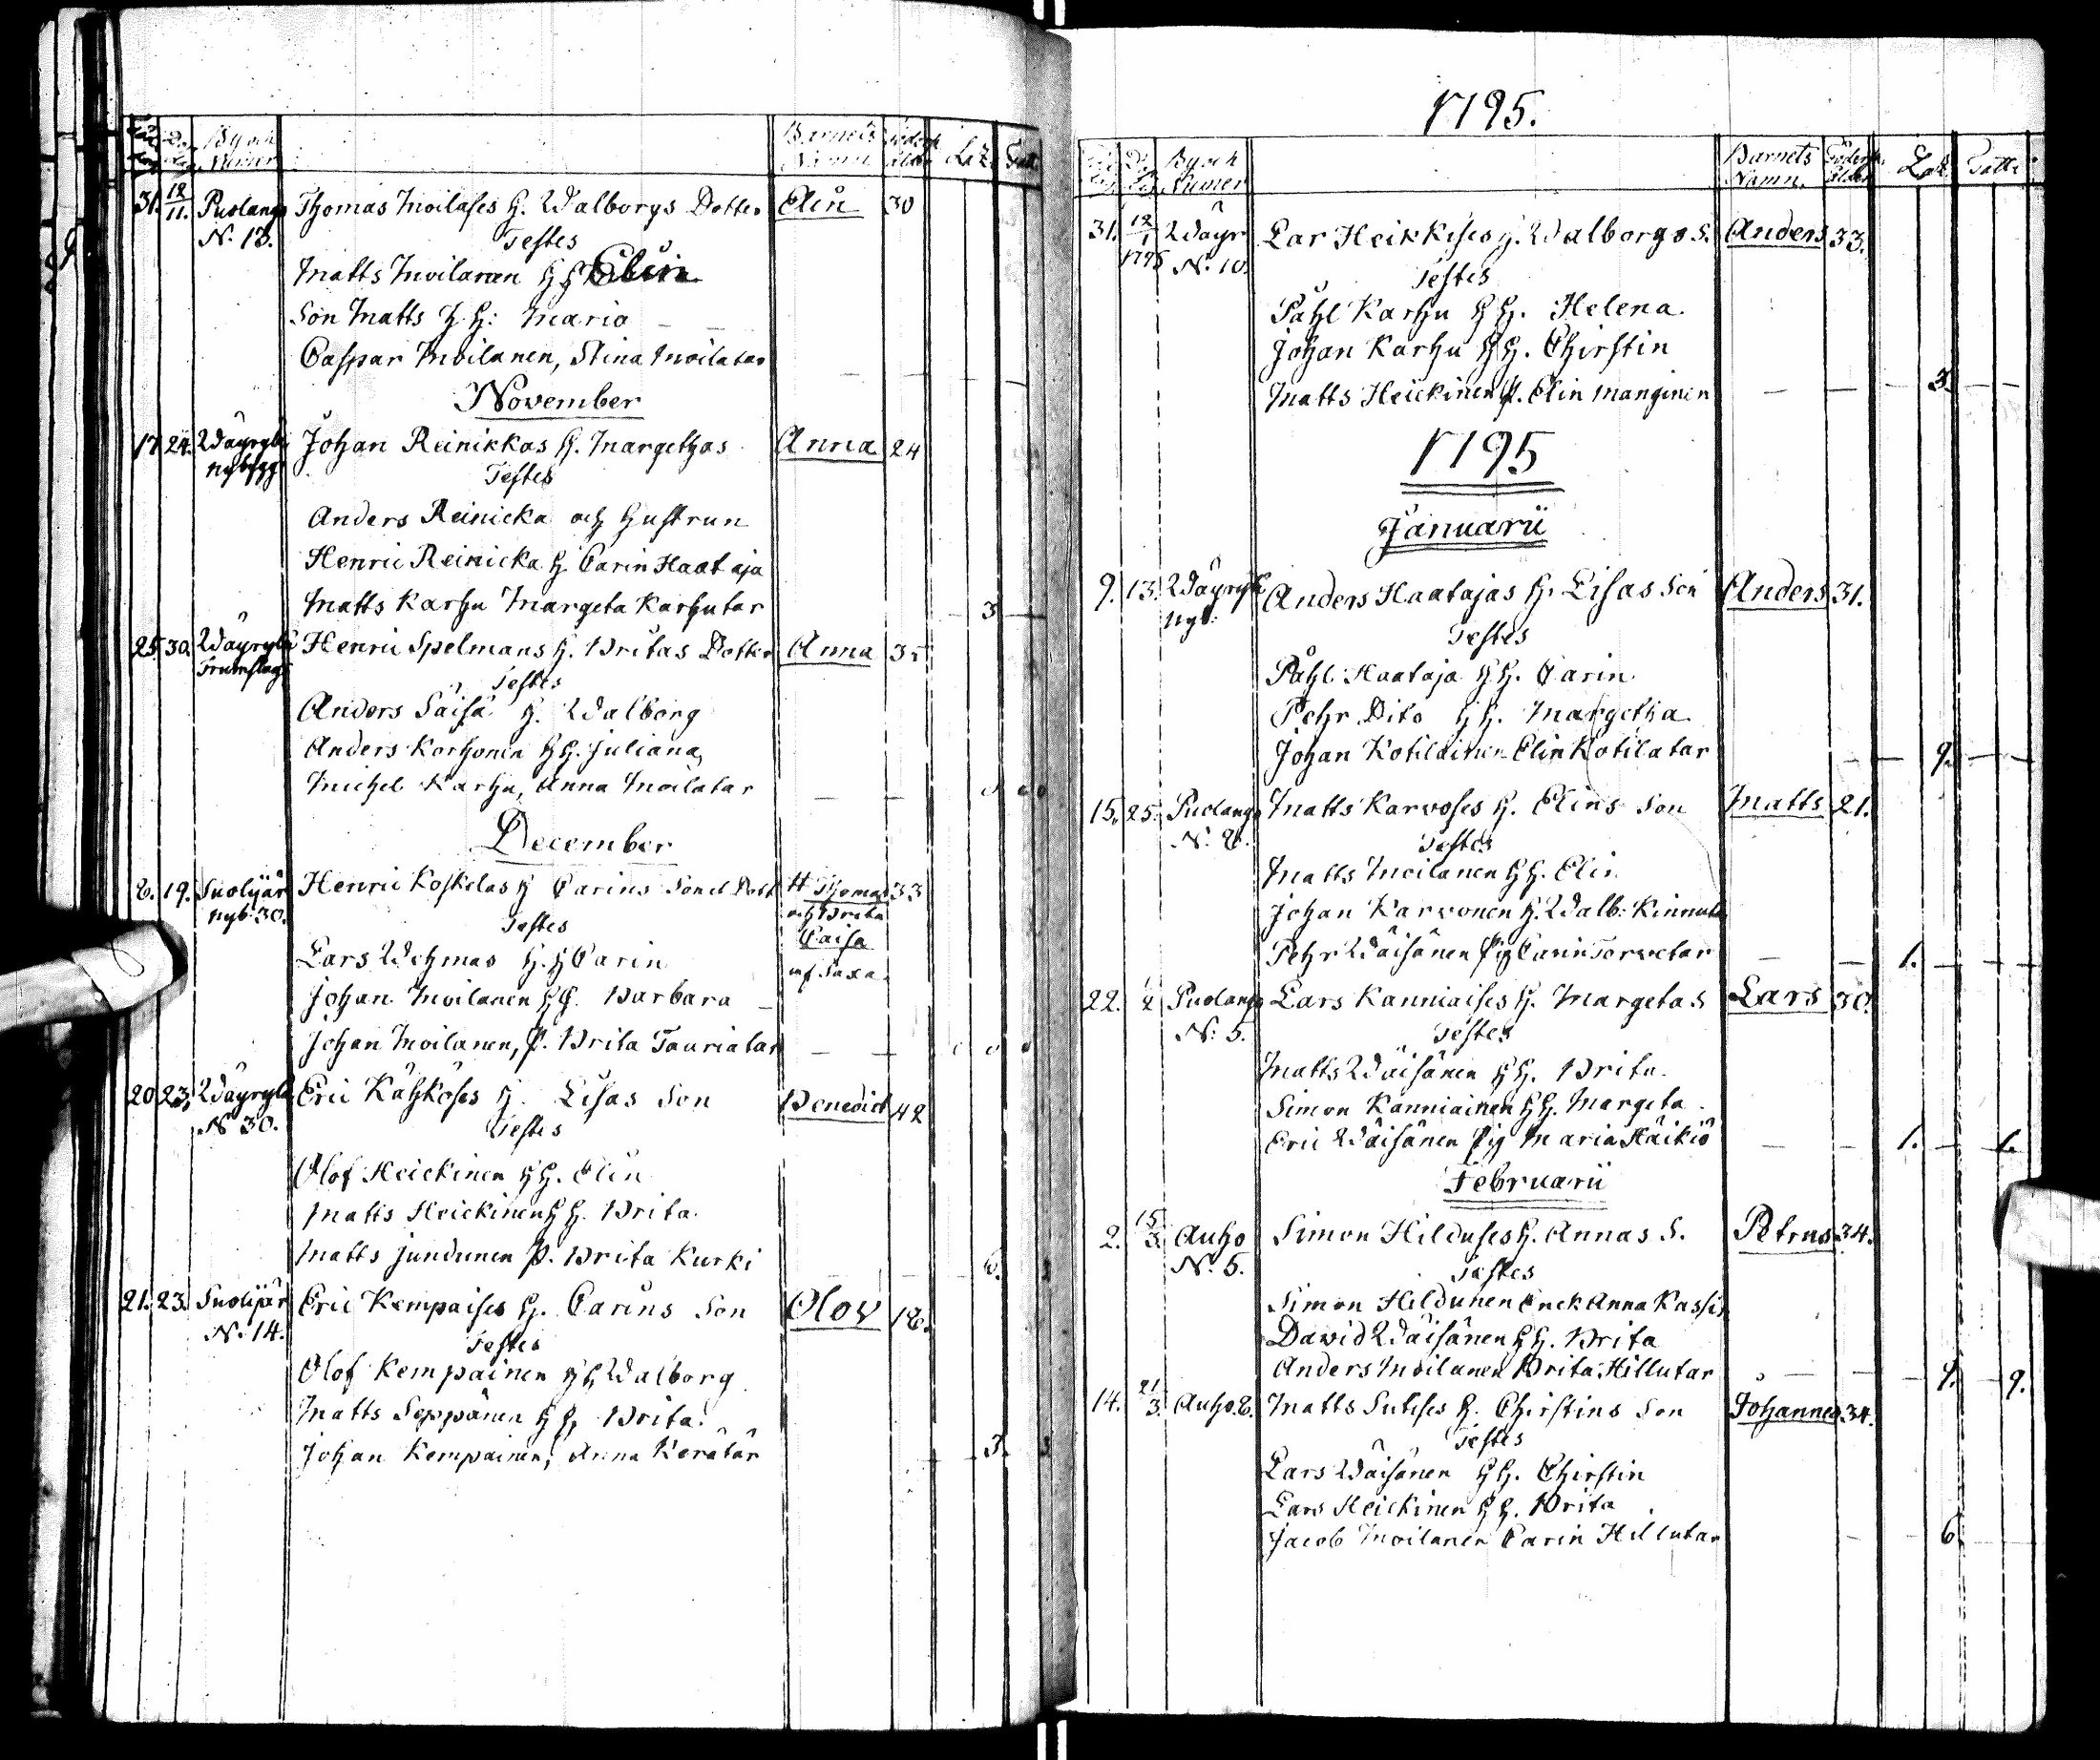 By och Numer Barnets Namn Ålder Lak. Fatt.
31. 12/11. Puolango Thomas Moilases H. Walborgs Dotter Elin 30
N. 13. Testes
Matts Moilanen H H Elin
Son Matts H H: Maria
Caspar Moilanen, Stina Moilatar
November
17. 24. Wäyrylä Johan Reinikkas H. Margethas Anna 24
nybygg Testes
Anders Reinicka och Hustrun
Henric Reinicka H Carin Haataja
Matts Karhu Margeta Karhutar 3
25. 30. Wäyrylä Henric Spelmans H. Britas Dotter Anna 35
Testes
Anders Säisä H. Walborg
Anders Korhonen H H. Juliana
Michel Karhu, Anna Moilatar
December
6. 19. Suolijär Henric Koskelas H Carins Son et Dott Thomas 33
nyb. 30. Testes och Brita
Caisa
Lars Wehmas H. H Carin
Johan Moilanen H H. Barbara
Johan Moilanen, P. Brita Tauriatar
20. 23. Wäyrylä Eric Kähköses H. Lisas Son Benedict 42
N. 30. Testes
Olof Heickinen H H. Elin
Matts Heickinen H H. Brita
Matts Jundunen P. Brita Kurki 6.
21. 23. Suolijär Eric Kempaises H. Carins Son Olov 18.
N. 14. Testes
Olof Kempainen H H Walborg
Matts Seppänen H H, Brita.
Johan Kempainen, Anna Kerätär 3. 3
1795.
By och Numer Barnets Namn. Föders. Ålder Lak. Fatti
31. 12/1 Wäyr Lar Heikkises H. Walborgs S. Anders 33.
1795 N. 10. Testes
Påhl Karhu H H. Helena
Johan Karhu H H. Chirstin
Matts Heickinen P. Elin Manginen 3.
1795
Januarii
9. 13. Wäyrylä Anders Haatajas H. Lisas Son Anders 31.
nyb: Testes
Påhl Haataja H H. Carin
Pehr Dito H H. Margetha
Johan Kotilainen Elin Kotilatar 9.
15. 25. Puolango Matts Karvoses H. Elins Son Matts 21.
N. 8. Testes
Matts Moilanen H H. Elin
Johan Karvonen H. Walb: Kinnut
Pehr Wäisänen Pig Carin Torvetar 1.
22. 1/2 Puolango Lars Kanniaises H. Margetas Lars 30.
N: 5. Testes
Matts Wäisänen H H. Brita
Simon Kanniainen H H. Margeta
Eric Wäisänen Pig Maria Häikiö 1. 1.
Februarii
2. 15/3. Auho Simon Hilduses H. Annas S. Petrus 34.
N. 5. Testes
Simon Hildunen Enck Anna Kassi
David Wäisänen H H. Brita
Anders Moilanen Brita Hillutar 9. 9.
14. 21/3. Auho. 6. Matts Suteses H. Chirstins Son Johannes 34.
Testes
Lars Wäisänen H H. Chirstin
Lars Heickinen H H. Brita
Jacob Moilanen Carin Hillutar 6.